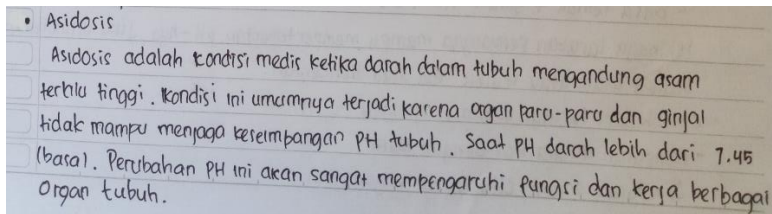 • Asidosis
Asidosis adalah kondisi medis ketika darah dalam tubuh mengandung asam
terlalu tinggi. Kondisi ini umumnya terjadi karena organ paru-paru dan ginjal
tidak mampu menjaga keseimbangan PH tubuh. Saat PH darah lebih dari 7.45
(basa). Perubahan PH ini akan sangat mempengaruhi fungsi dan kerja berbagai
organ tubuh.